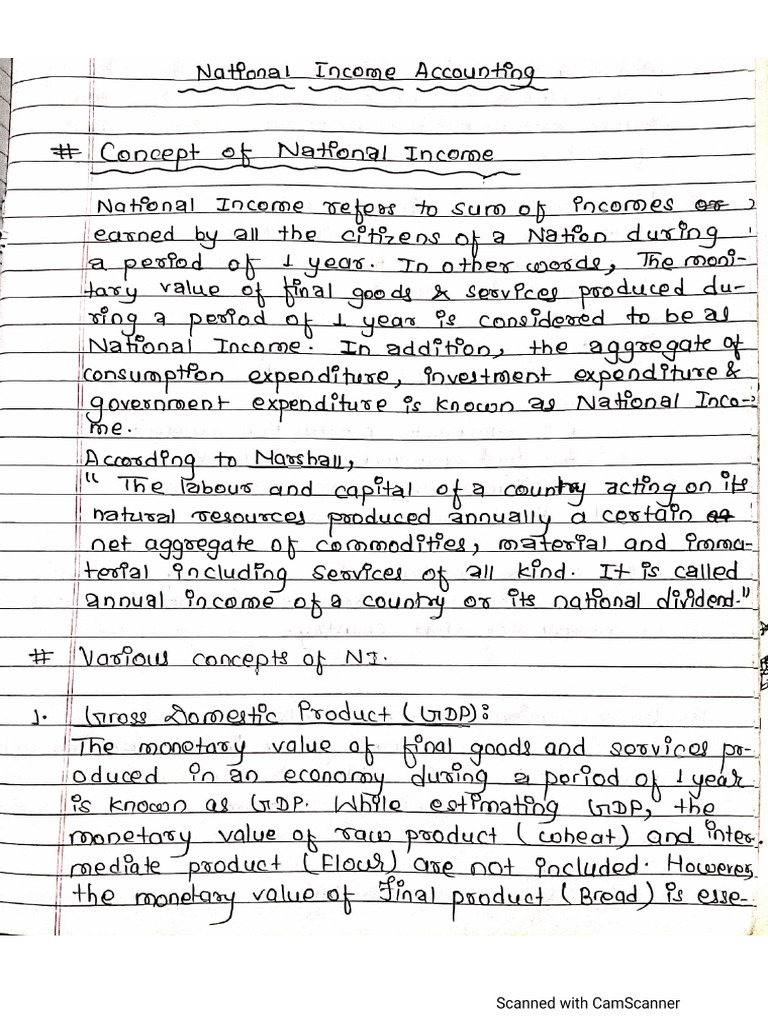 National Income Accounting
# Concept of National Income
National Income refers to sum of incomes or
earned by all the citizens of a Nation during
a period of 1 year. In other words, The moni-
tary value of final goods & services produced du-
ring a period of 1 year is considered to be as
National Income. In addition, the aggregate of
consumption expenditure, investment expenditure &
government expenditure is known as National Inco-
me.
According to Marshall,
" The labour and capital of a country acting on its
natural resources produced annually a certain
net aggregate of commodities, material and imma-
terial including services of all kind. It is called
annual income of a country or its national dividend."
# Various concepts of NI.
1. Gross Domestic Product (GDP):
The monetary value of final goods and services pr-
oduced in an economy during a period of 1 year
is known as GDP. While estimating GDP, the
monetary value of raw product (wheat) and inter-
mediate product (Flour) are not included. However,
the monetary value of final product (Bread) is esse-
Scanned with CamScanner